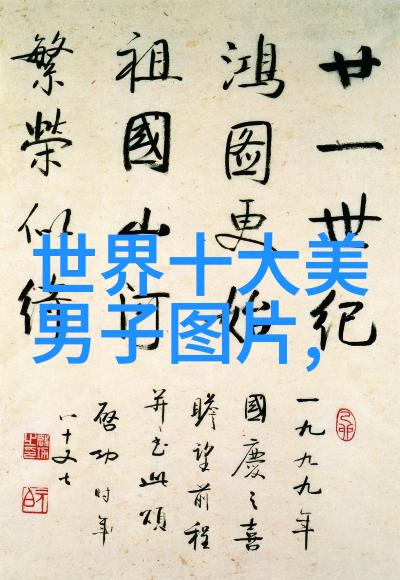 廿一世纪
鸿图更始
祖國山河
繁荣似绮
一九九九年
國慶之喜
瞻望前程
并书此颂
启功时年
八十又七
世界十大美
男子图片,